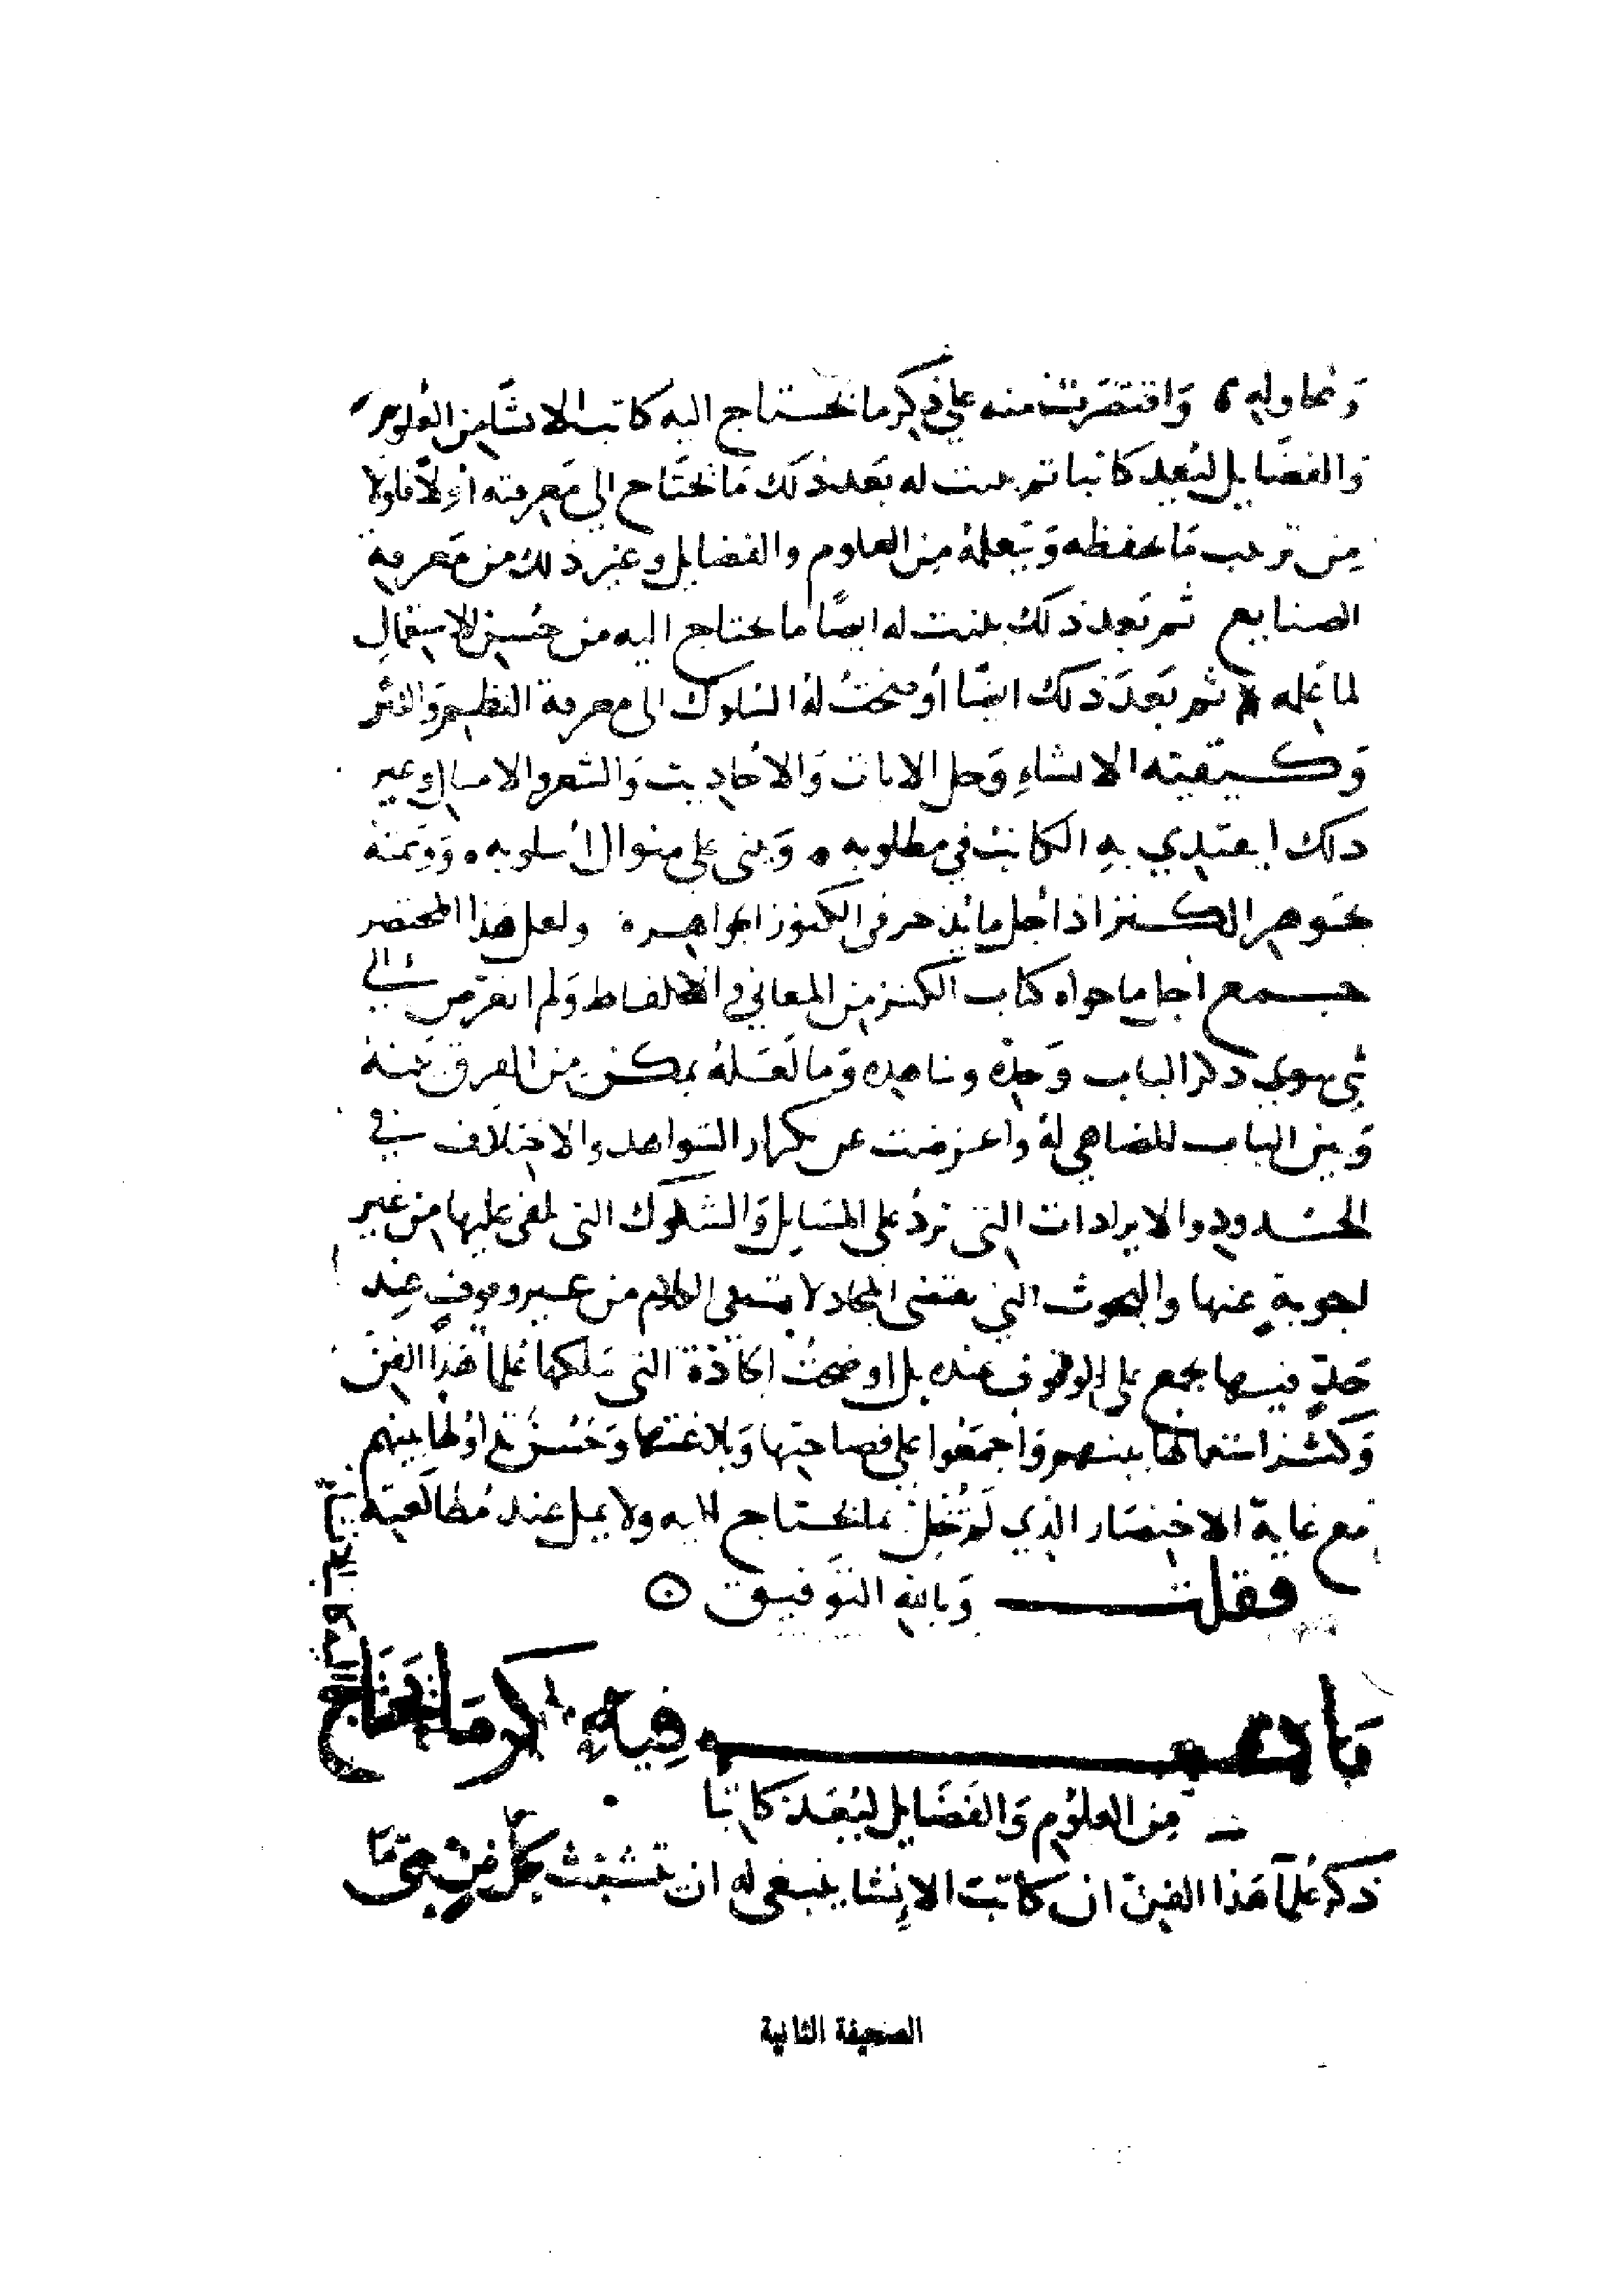 ونحاوله، وَاقتصَرت منه على ذكر ما يحتاج اليه كاتب الانشا من العُلوم
وَالفضَايل ليُعد كاتبا ثم بينت له بَعد ذلك مَا يحتَاج الي مَعرفته أوّلاً فاولا
مِن ترتيب مَا يحفظه وَيتعلمهُ مِن العلوم والفضايل وغير ذلك من مَعرفة
الصنايع ثم بَعد ذلك بينت له ايضًا ما يحتاج اليه من حُسن الاستعمالِ
لما عَلمه ثم بَعدَ ذلك ايضًا أوضحتُ لهُ السُلوك الى معرفة النظم وَالنثر
وَكيفيته الانشاءِ وَحل الايات وَالاحَاديث وَالشعر والامثال وغير
ذلك ليهتدي بهِ الكاتب في مطلوبه وَيبنى على منوال أسلوبه وَوسَمته
بجَوهر الكنز اذ أجل ما يُذخر في الكنوز الجواهر ولعل هذا المختصر
جمع أجل ما حواه كتاب الكنز مِن المعاني والالفاظ وَلم اتعرض الي
شي سوي ذكر الباب وَحدّه وشاهده وَما لَعَلهُ يمكن مِن الفرق بَينهُ
وَبين الباب المضاهي لهُ واعرضت عن تكرار الشواهد والاختلاف في
الحدود والايرادات التي تردُ على المسَايل وَالشكوك التي يلقى عليها من غير
اجوبةٍ عنها والبحوث التي تقتضى المجادلا ت على الكلام من غير وقوفٍ عِند
حَدٍّ فيها يجمع على الوقوف عنده بل اوضحتُ الجَادّة التى سَلكها عُلماءُ هَذا الفن
وَكثر استعمالها بينهم وَاجمَعُوا على فصاحتها وَبلاغتها وَحُسن تداوُلها بينهم
مع غاية الاختصَار الذي لَم يُخل بما يحتاج اليه ولا يمل عند مُطالَعته
فقلت وَبالله التوَفيق
بَاب فِيهِ ذكر مَا يَحتَاج اليه كاتب الانشا
مِن العلوُم وَالفَضَايل ليُعَد كاتبا
ذكر عُلمآ هَذا الفن ان كاتبَ الإنشا ينبغى له ان يتشبث بكل فن حَتى مَا
الصحيفة الثانية